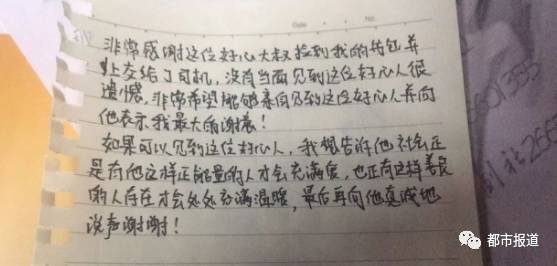 Date
No.
非常感谢这位好心大叔捡到我的钱包并
上交给了司机，没有当面见到这位好心人很
遗憾，非常希望能够亲自见到这位好心人并向
他表示我最大的谢意！
如果可以见到这位好心人，我想告诉他社会正
是有他这样正能量的人才会充满爱，也正有这样善良
的人存在才会处处充满温暖，最后再向他真诚地
说声谢谢！
都市报道